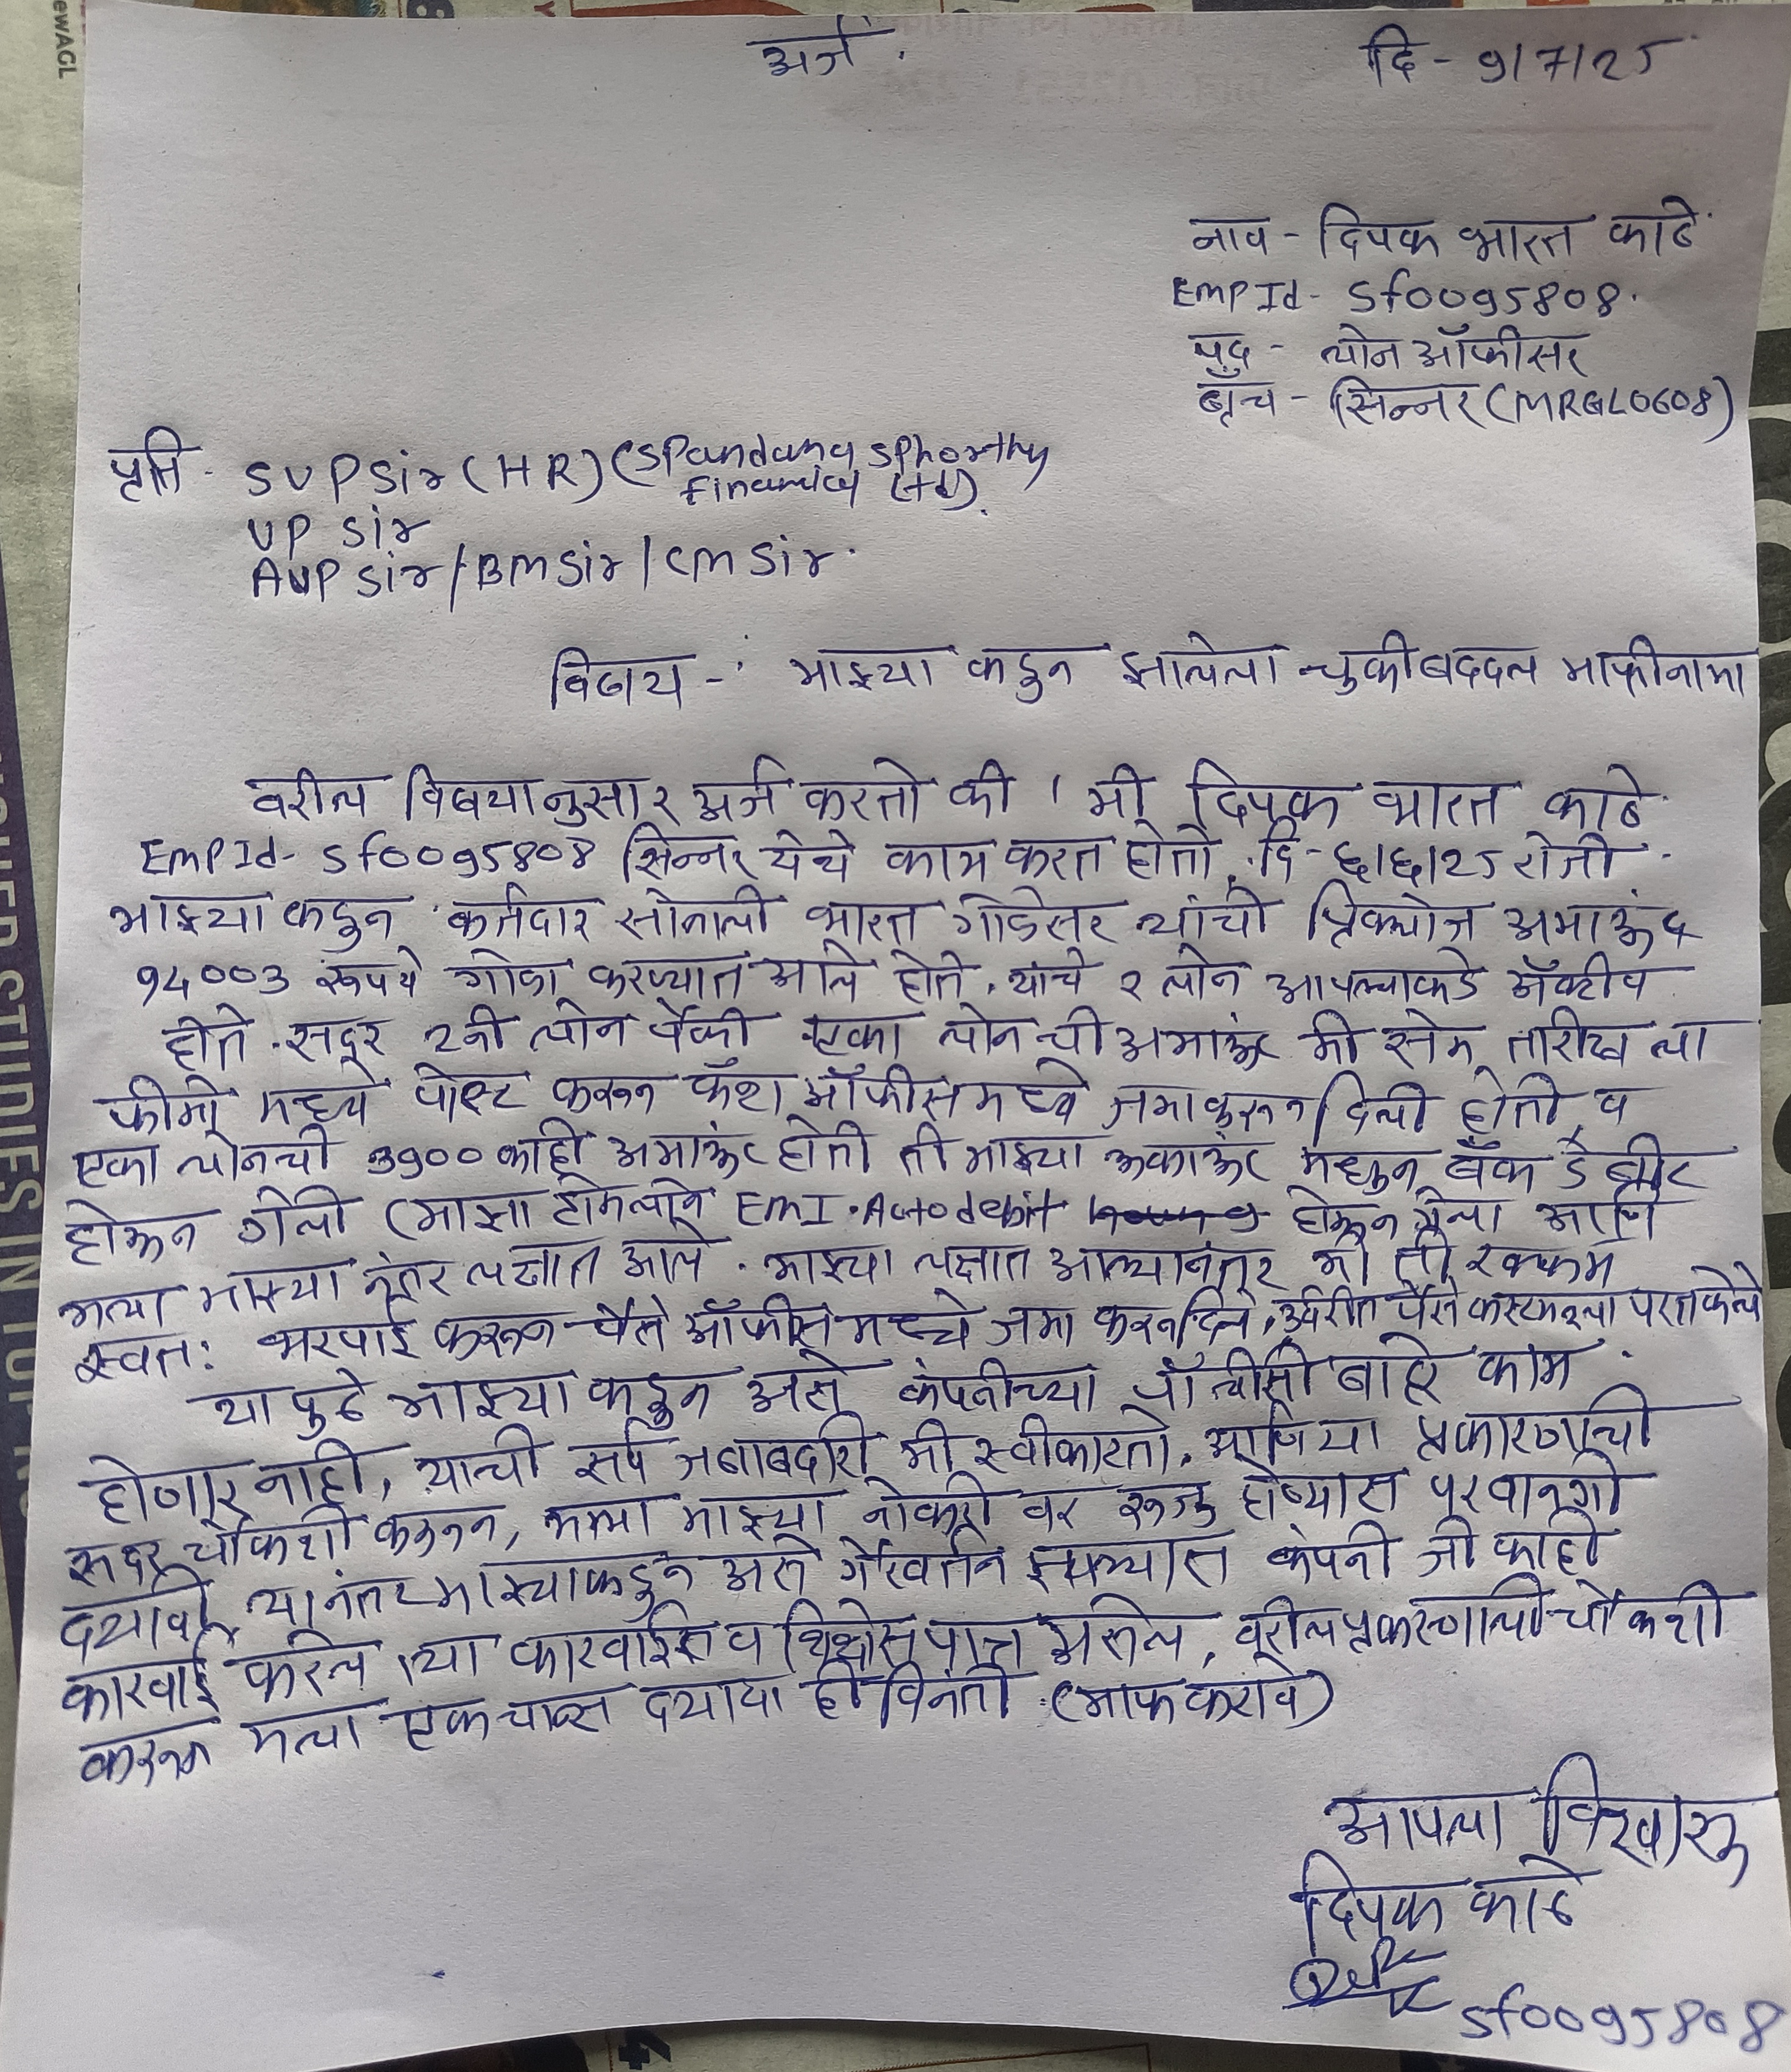 अर्ज.
दि - 9/7/25
नाव - दिपक भारत काठे
EMP Id - Sf0095808.
पद - लोन ऑफीसर
ब्रँच - सिन्नर (MRGL0608)
प्रति - SVP Sir (HR) (Spandana Sphorthy
Financial Ltd).
VP Sir
AVP Sir / BM Sir / CM Sir.
विषय - माझ्या कडुन झालेला चुकीबददल माफीनामा
वरील विषयानुसार अर्ज करतो की, मी दिपक भारत काठे
EMP Id - Sf0095808 सिन्नर येथे काम करत होतो. दि - ६/६/25 रोजी
माझ्या कडुन कर्जदार सोनाली भारत गोडेसर त्यांची प्रिक्लोज अमाऊंट
94003 रूपये गोळा करण्यात आले होते. यांचे २ लोन आपल्याकडे ॲक्टीव
होते. सदर 2नी लोन पैकी एका लोन ची अमाऊंट मी सेम तारीख ला
फीमो मध्ये पोस्ट करून कॅश ऑफीसमध्ये जमा करून दिली होती, व
एका लोनची 3900 काही अमाऊंट होती ती माझ्या अकाऊंट मधुन बँक डेबीट
होऊन गेली (माझा होमलोन EMI. Autodebit होऊन गेला आणि
मला माझ्या नंतर लक्षात आले. माझ्या लक्षात आल्यानंतर मी ती रक्कम
स्वत: भरपाई करून पैसे ऑफीसमध्ये जमा करून दिले, उर्वरीत पैसे कस्टमरला परत केले
या पुढे माझ्या कडुन असे कंपनीच्या पॉलीसी बाहेर काम
होणार नाही, याची सर्व जबाबदारी मी स्वीकारतो. आणि या प्रकारणाची
सदर चौकशी करून, मला माझ्या नोकरी वर रूजु होण्यास परवानगी
दयावी, त्यानंतर माझ्याकडुन असे गैरवर्तन झाल्यास कंपनी जी काही
कारवाई करेल त्या कारवाईस व पात्र असेल, वरील प्रकरणाची चौकशी
करून मला एक चान्स दयावा ही विनंती. (माफ करावे)
आपला विश्वासू
दिपक काठे
Sf0095808